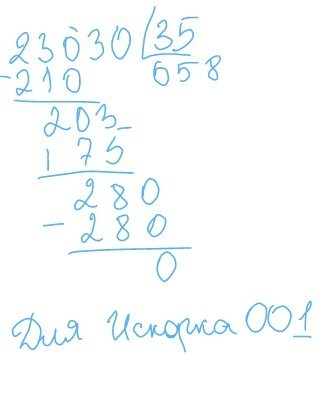 23030 35
-210 658
203-
175
280
- 280
0
Для Искорка 001